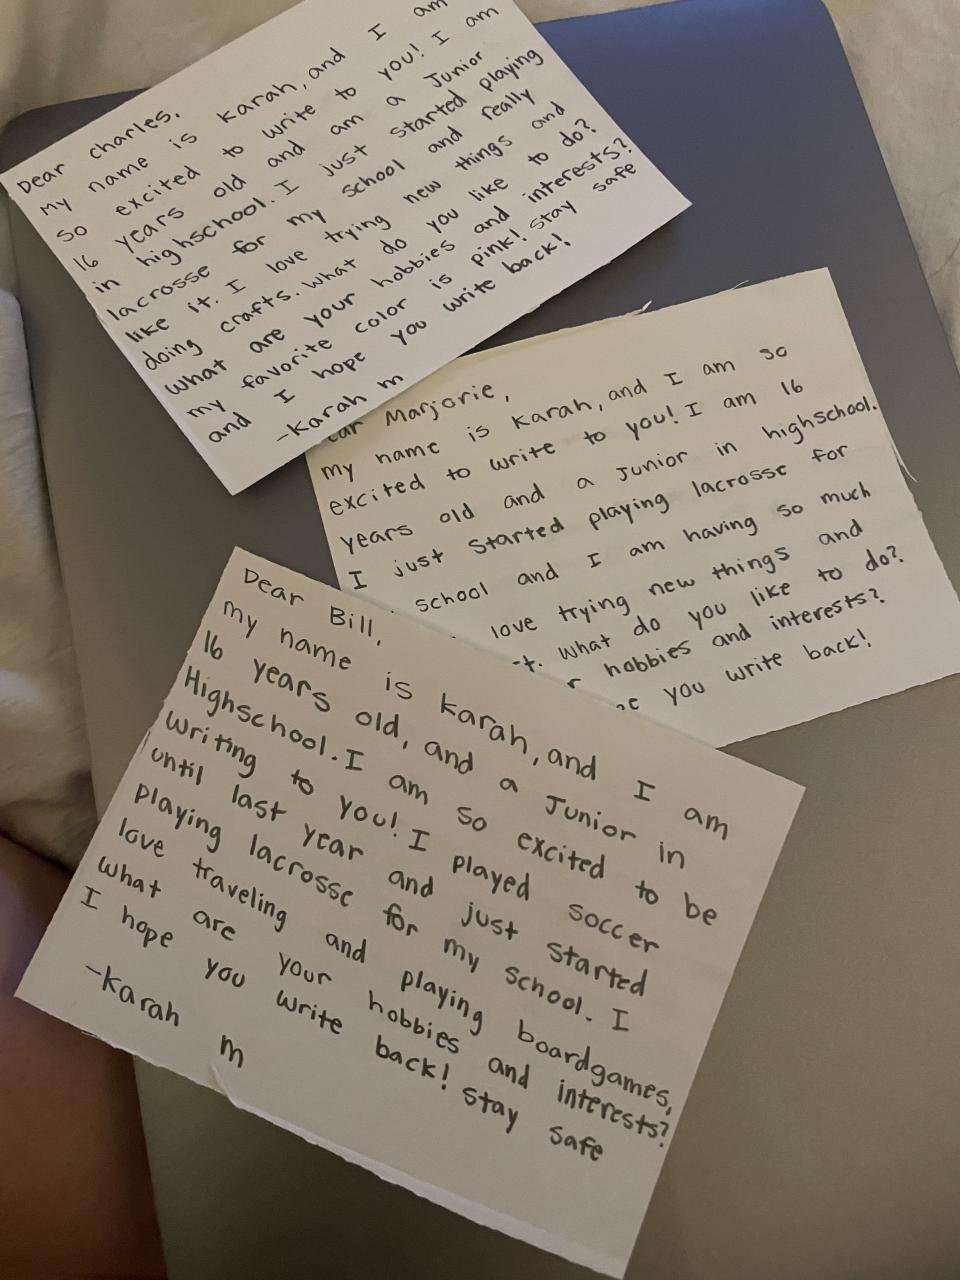 Dear charles,
my name is karah, and I am
so excited to write to you! I am
16 years old and am a Junior
in highschool. I just started playing
lacrosse for my school and really
like it. I love trying new things and
doing crafts. What do you like to do?
what are your hobbies and interests?
my favorite color is pink! stay safe
and I hope you write back!
-karah m
Marjorie,
my name is karah, and I am so
excited to write to you! I am 16
years old and a Junior in highschool.
I just started playing lacrosse for
school and I am having so much
love trying new things and
what do you like to do?
hobbies and interests?
you write back!
Dear Bill,
my name is karah, and I am
16 years old, and a Junior in
Highschool. I am so excited to be
writing to you! I played soccer
until last year and just started
playing lacrosse for my school. I
love traveling and playing boardgames,
what are your hobbies and interests?
I hope you write back! stay safe
-karah m